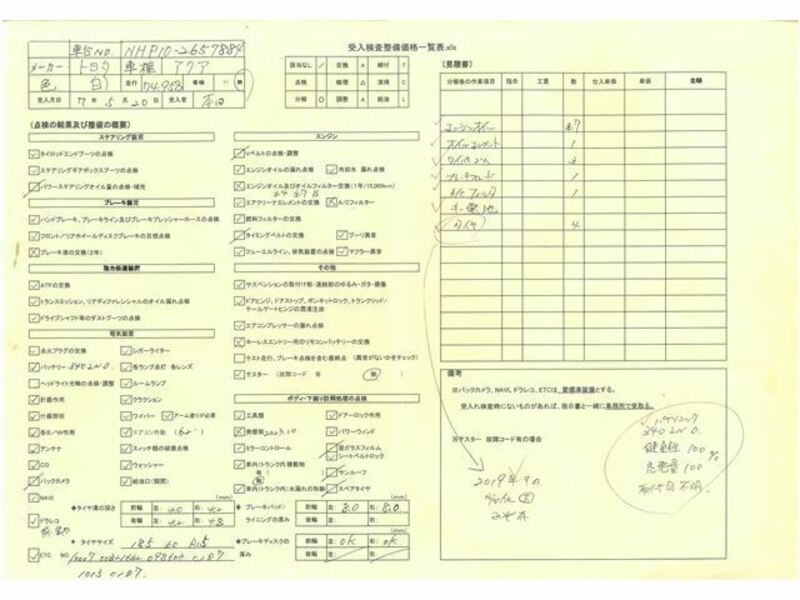 受入検査整備価格一覧表.xls
車台NO. NHP10-2657884
メーカー トヨタ 車種 アクア
色 白 走行 74,958 車検 無
受入月日 7年 5月 20日 受入者
該当なし ／ 交換 × 締付 T
点検 ✓ 修理 △ 清掃 C
分解 ○ 調整 A 給油 L
(見積書)
分解後の作業項目 指示 工賃 数 仕入単価 単価 金額
エンジンオイル 3.7
オイルエレメント 1
ワイパーゴム 3
ブレーキフルード 1
A/Cフィルタ 1
キー電池
タイヤ 4
(点検の結果及び整備の概要)
ステアリング装置
タイロッドエンドブーツの点検
ステアリングギアボックスブーツの点検
パワーステアリングオイル量の点検・補充
ブレーキ装置
ハンドブレーキ、ブレーキライン及びブレーキプレッシャーホースの点検
フロント/リアホイールディスクブレーキの目視点検
ブレーキ液の交換(2年)
動力伝達装置
ATFの交換
トランスミッション、リアディファレンシャルのオイル漏れ点検
ドライブシャフト等のダストブーツの点検
電気装置
点火プラグの交換 シガーライター
バッテリー 340LN0. 各ランプ点灯 各レンズ
ヘッドライト光軸の点検・調整 ルームランプ
計器作用 クラクション
什器照明 ワイパー アーム塗りが必要
各S/W作用 エアコン作動 (6℃)
アンテナ スイッチ類の破損点検
CD ウォッシャー
バックカメラ 給油口(開閉)
NAVI
ドラレコ
ETC NO.
エンジン
Vベルトの点検・調整
エンジンオイルの漏れ点検 冷却水 漏れ点検
エンジンオイル及びオイルフィルター交換(1年/15,000km)
エアクリーナエレメントの交換 A/Cフィルター
燃料フィルターの交換
タイミングベルトの交換 プーリ異音
フューエルライン、排気装置の点検 マフラー異音
その他
サスペンションの取付け部・連結部のゆるみ・ガタ・損傷
ドアヒンジ、ドアストップ、ボンネットロック、トランクリッド/テールゲートヒンジの潤滑注油
エアコンプレッサーの漏れ点検
キーレスエントリー用のリモコンバッテリーの交換
テスト走行、ブレーキ点検を含む最終点 (異音がないかをチェック)
テスター (故障コード 有 無)
ボディ・下廻り防錆処理の点検
工具類 ドアーロック作用
発煙筒 2023.10 パワーウィンド
ミラーコントロール 窓ガラスフィルム
シートベルトロック
車内(トランク内)積載物 サンルーフ
無
車内(トランク内)水漏れの形跡 スペアタイヤ
◆タイヤ溝の深さ (mm) 前輪 左: 4.0 右: 4.2
後輪 左: 4.2 右: 4.8
◆ブレーキパッド/ライニングの厚み (mm) 前輪 左: 8.0 右: 8.0
後輪 左: 右:
◆タイヤサイズ 185 60 R15
◆ブレーキディスクの厚み (mm) 前輪 左: OK 右: OK
後輪 左: 右:
1013 0107.
備考
※バックカメラ、NAVI、ドラレコ、ETCは最標準装備とする。
受入れ検査時にないものがあれば、指示書と一緒に事務所で受取る。
※テスター 故障コード有の場合
パナソニック
340LN0.
健全性 100%
充電量 100
取付日不明.
2019年その